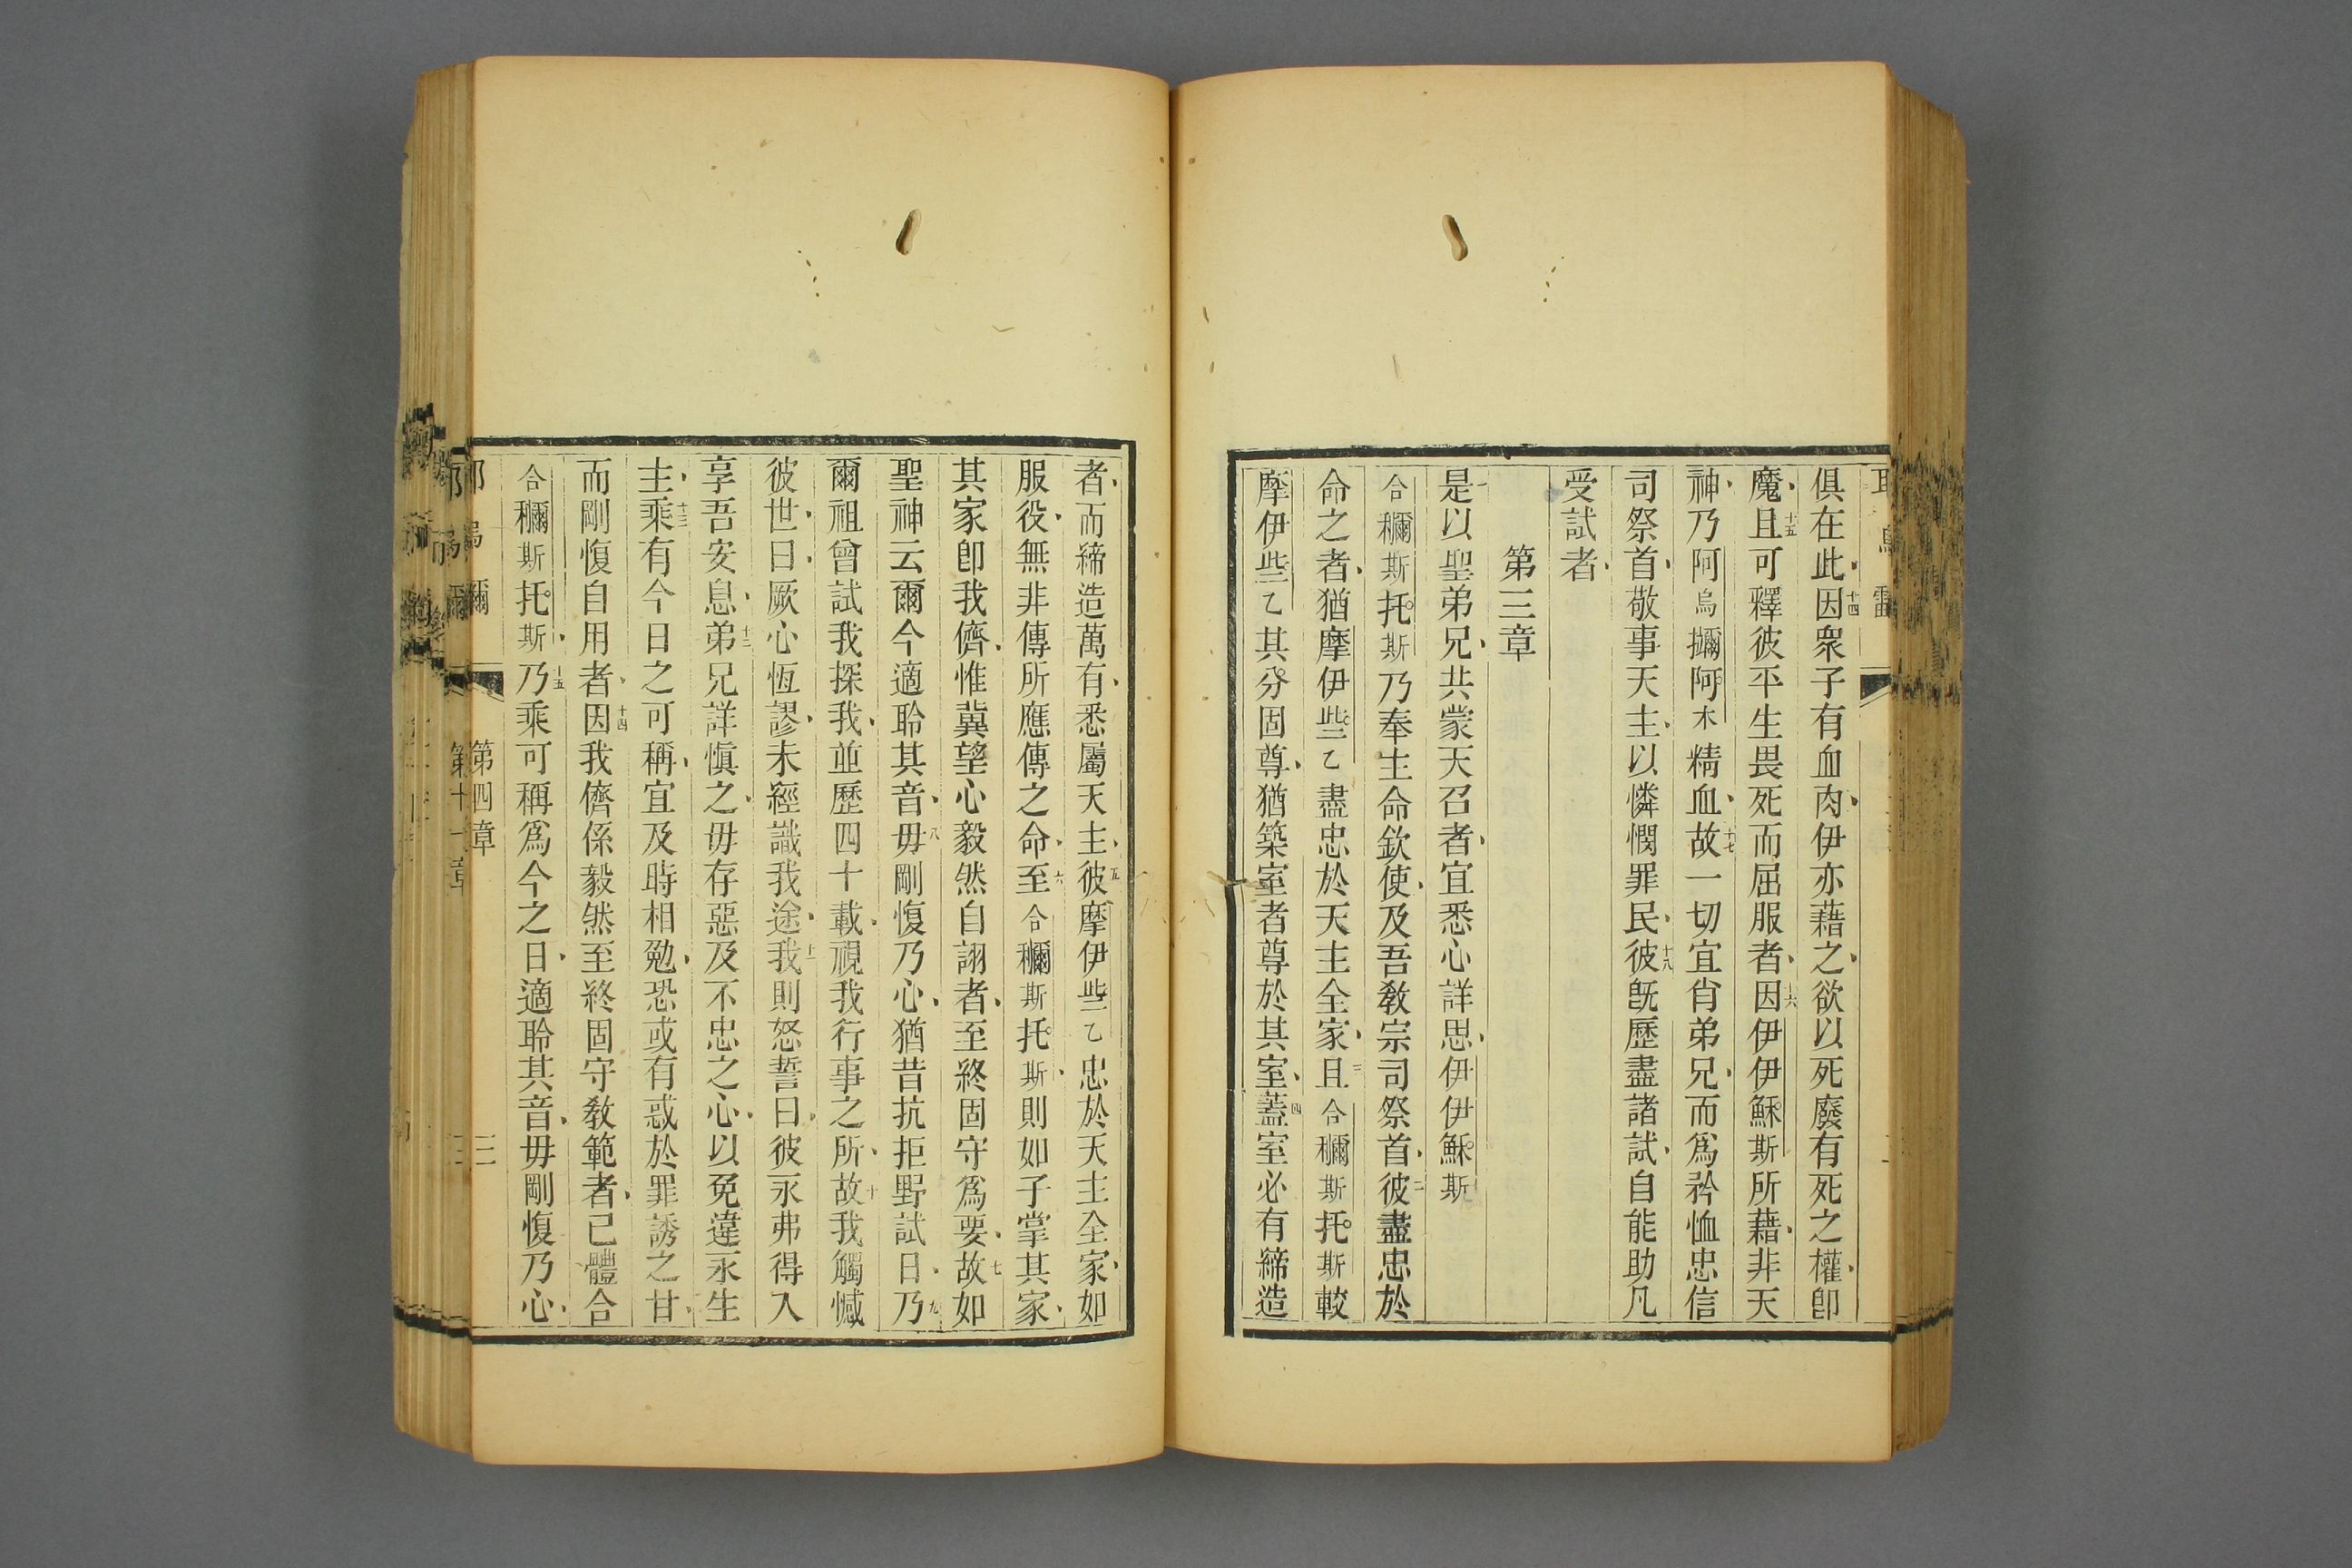 俱在此、十四因衆子有血肉、伊亦藉之、欲以死廢有死之權、卽
魔、十五且可釋彼平生畏死而屈服者、十六因伊伊穌斯所藉、非天
神、乃阿烏㩶阿木精血、十七故一切宜肖弟兄、而爲矜恤忠信
司祭首、敬事天主、以憐憫罪民、十八彼旣歷盡諸試、自能助凡
受試者、
第三章
一是以聖弟兄、共蒙天召者、宜悉心詳思、伊伊穌斯
合穪斯托斯乃奉主命欽使、及吾敎宗司祭首、二彼盡忠於
命之者、猶摩伊些乙盡忠於天主全家、三且合穪斯托斯較
摩伊些乙其分固尊、猶築室者尊於其室、四蓋室必有締造
者、而締造萬有、悉屬天主、五彼摩伊些乙忠於天主全家、如
服役、無非傳所應傳之命、六至合穪斯托斯、則如子掌其家、
其家卽我儕、惟冀望心毅然自詡者、至終固守爲要、七故如
聖神云爾今適聆其音、八毋剛愎乃心、猶昔抗拒野試日、九乃
爾祖曾試我探我、並歷四十載、視我行事之所、十故我觸憾
彼世、曰、厥心恆謬、未經識我途、十一我則怒誓曰、彼永弗得入
享吾安息、十二弟兄詳愼之、毋存惡及不忠之心、以免違永生
主、十三乘有今日之可稱、宜及時相勉、恐或有惑於罪誘之甘、
而剛愎自用者、十四因我儕係毅然至終固守敎範者、已體合
合穪斯托斯、十五乃乘可稱爲今之日、適聆其音、毋剛愎乃心、
第四章
三